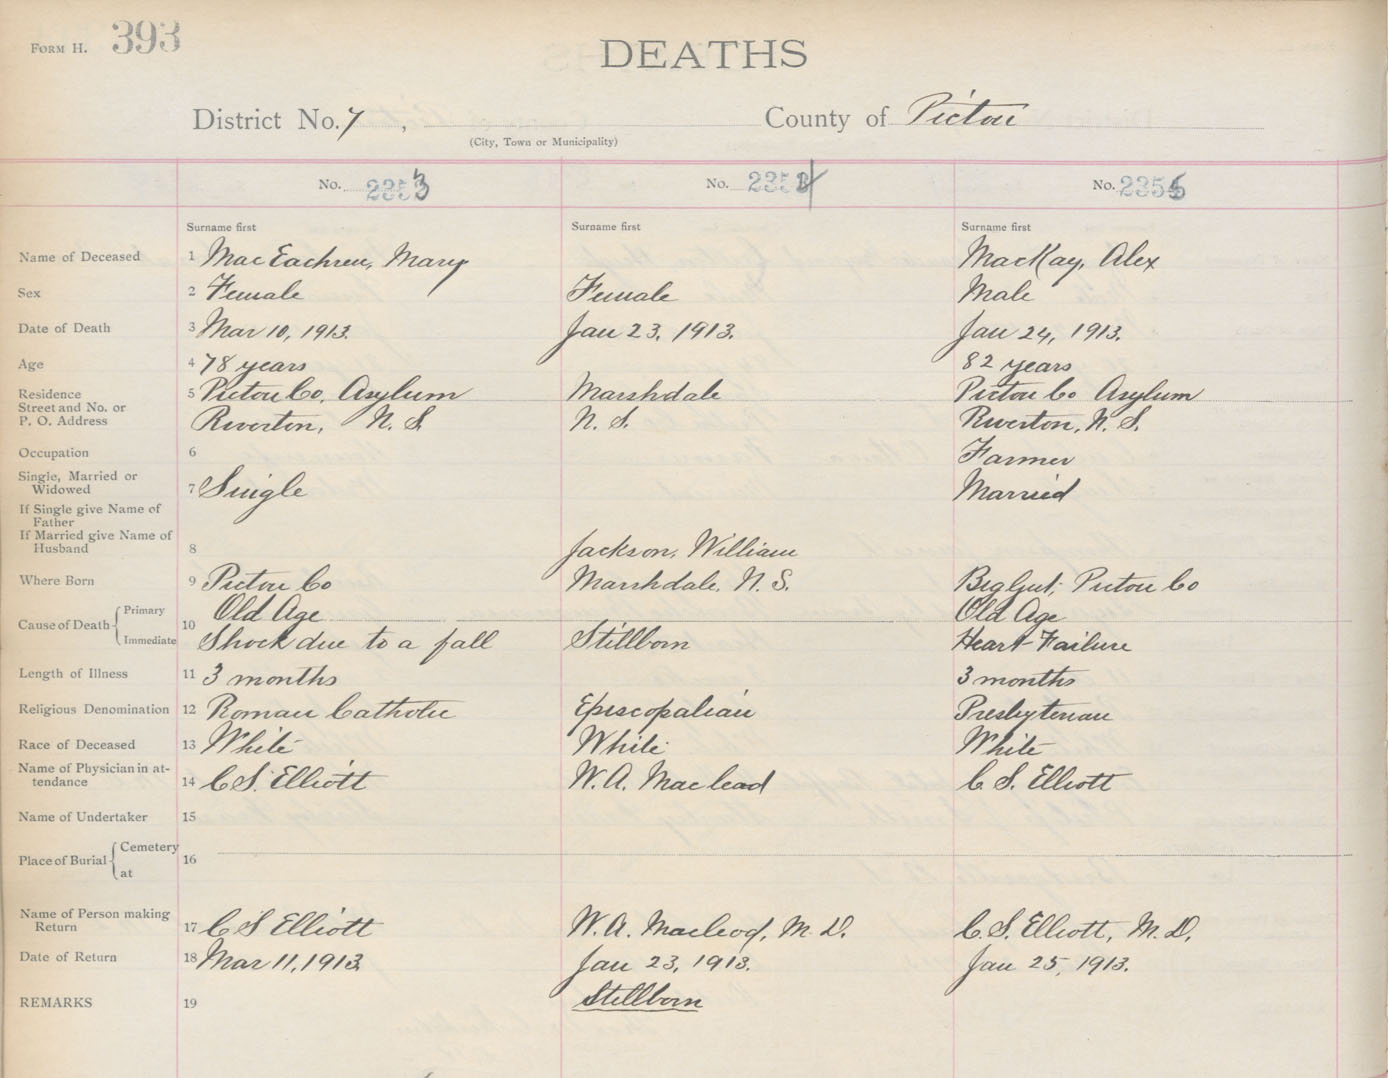 FORM H. 393
DEATHS
District No. 7, County of Pictou
(City, Town or Municipality)
No. 2353 No. 2354 No. 2355
Surname first Surname first Surname first
Name of Deceased 1 MacEachren, Mary MacKay, Alex
Sex 2 Female Female Male
Date of Death 3 Mar 10, 1913. Jan 23, 1913. Jan 24, 1913.
Age 4 78 years 82 years
Residence 5 Pictou Co, Asylum Marshdale Pictou Co Asylum
Street and No. or
P. O. Address Riverton, N. S. N. S. Riverton, N. S.
Occupation 6 Farmer
Single, Married or
Widowed 7 Single Married
If Single give Name of
Father
If Married give Name of
Husband 8 Jackson, William
Where Born 9 Pictou Co Marshdale, N. S. Big Gut, Pictou Co
Cause of Death Primary 10 Old Age Old Age
Immediate Shock due to a fall Stillborn Heart Failure
Length of Illness 11 3 months 3 months
Religious Denomination 12 Roman Catholic Episcopalian Presbyterian
Race of Deceased 13 White White White
Name of Physician in at-
tendance 14 C. S. Elliott W. A. Macleod C. S. Elliott
Name of Undertaker 15
Place of Burial Cemetery 16
at
Name of Person making
Return 17 C S Elliott W. A. Macleod, M. D. C. S. Elliott, M. D.
Date of Return 18 Mar 11, 1913 Jan 23, 1913. Jan 25, 1913.
REMARKS 19 Stillborn